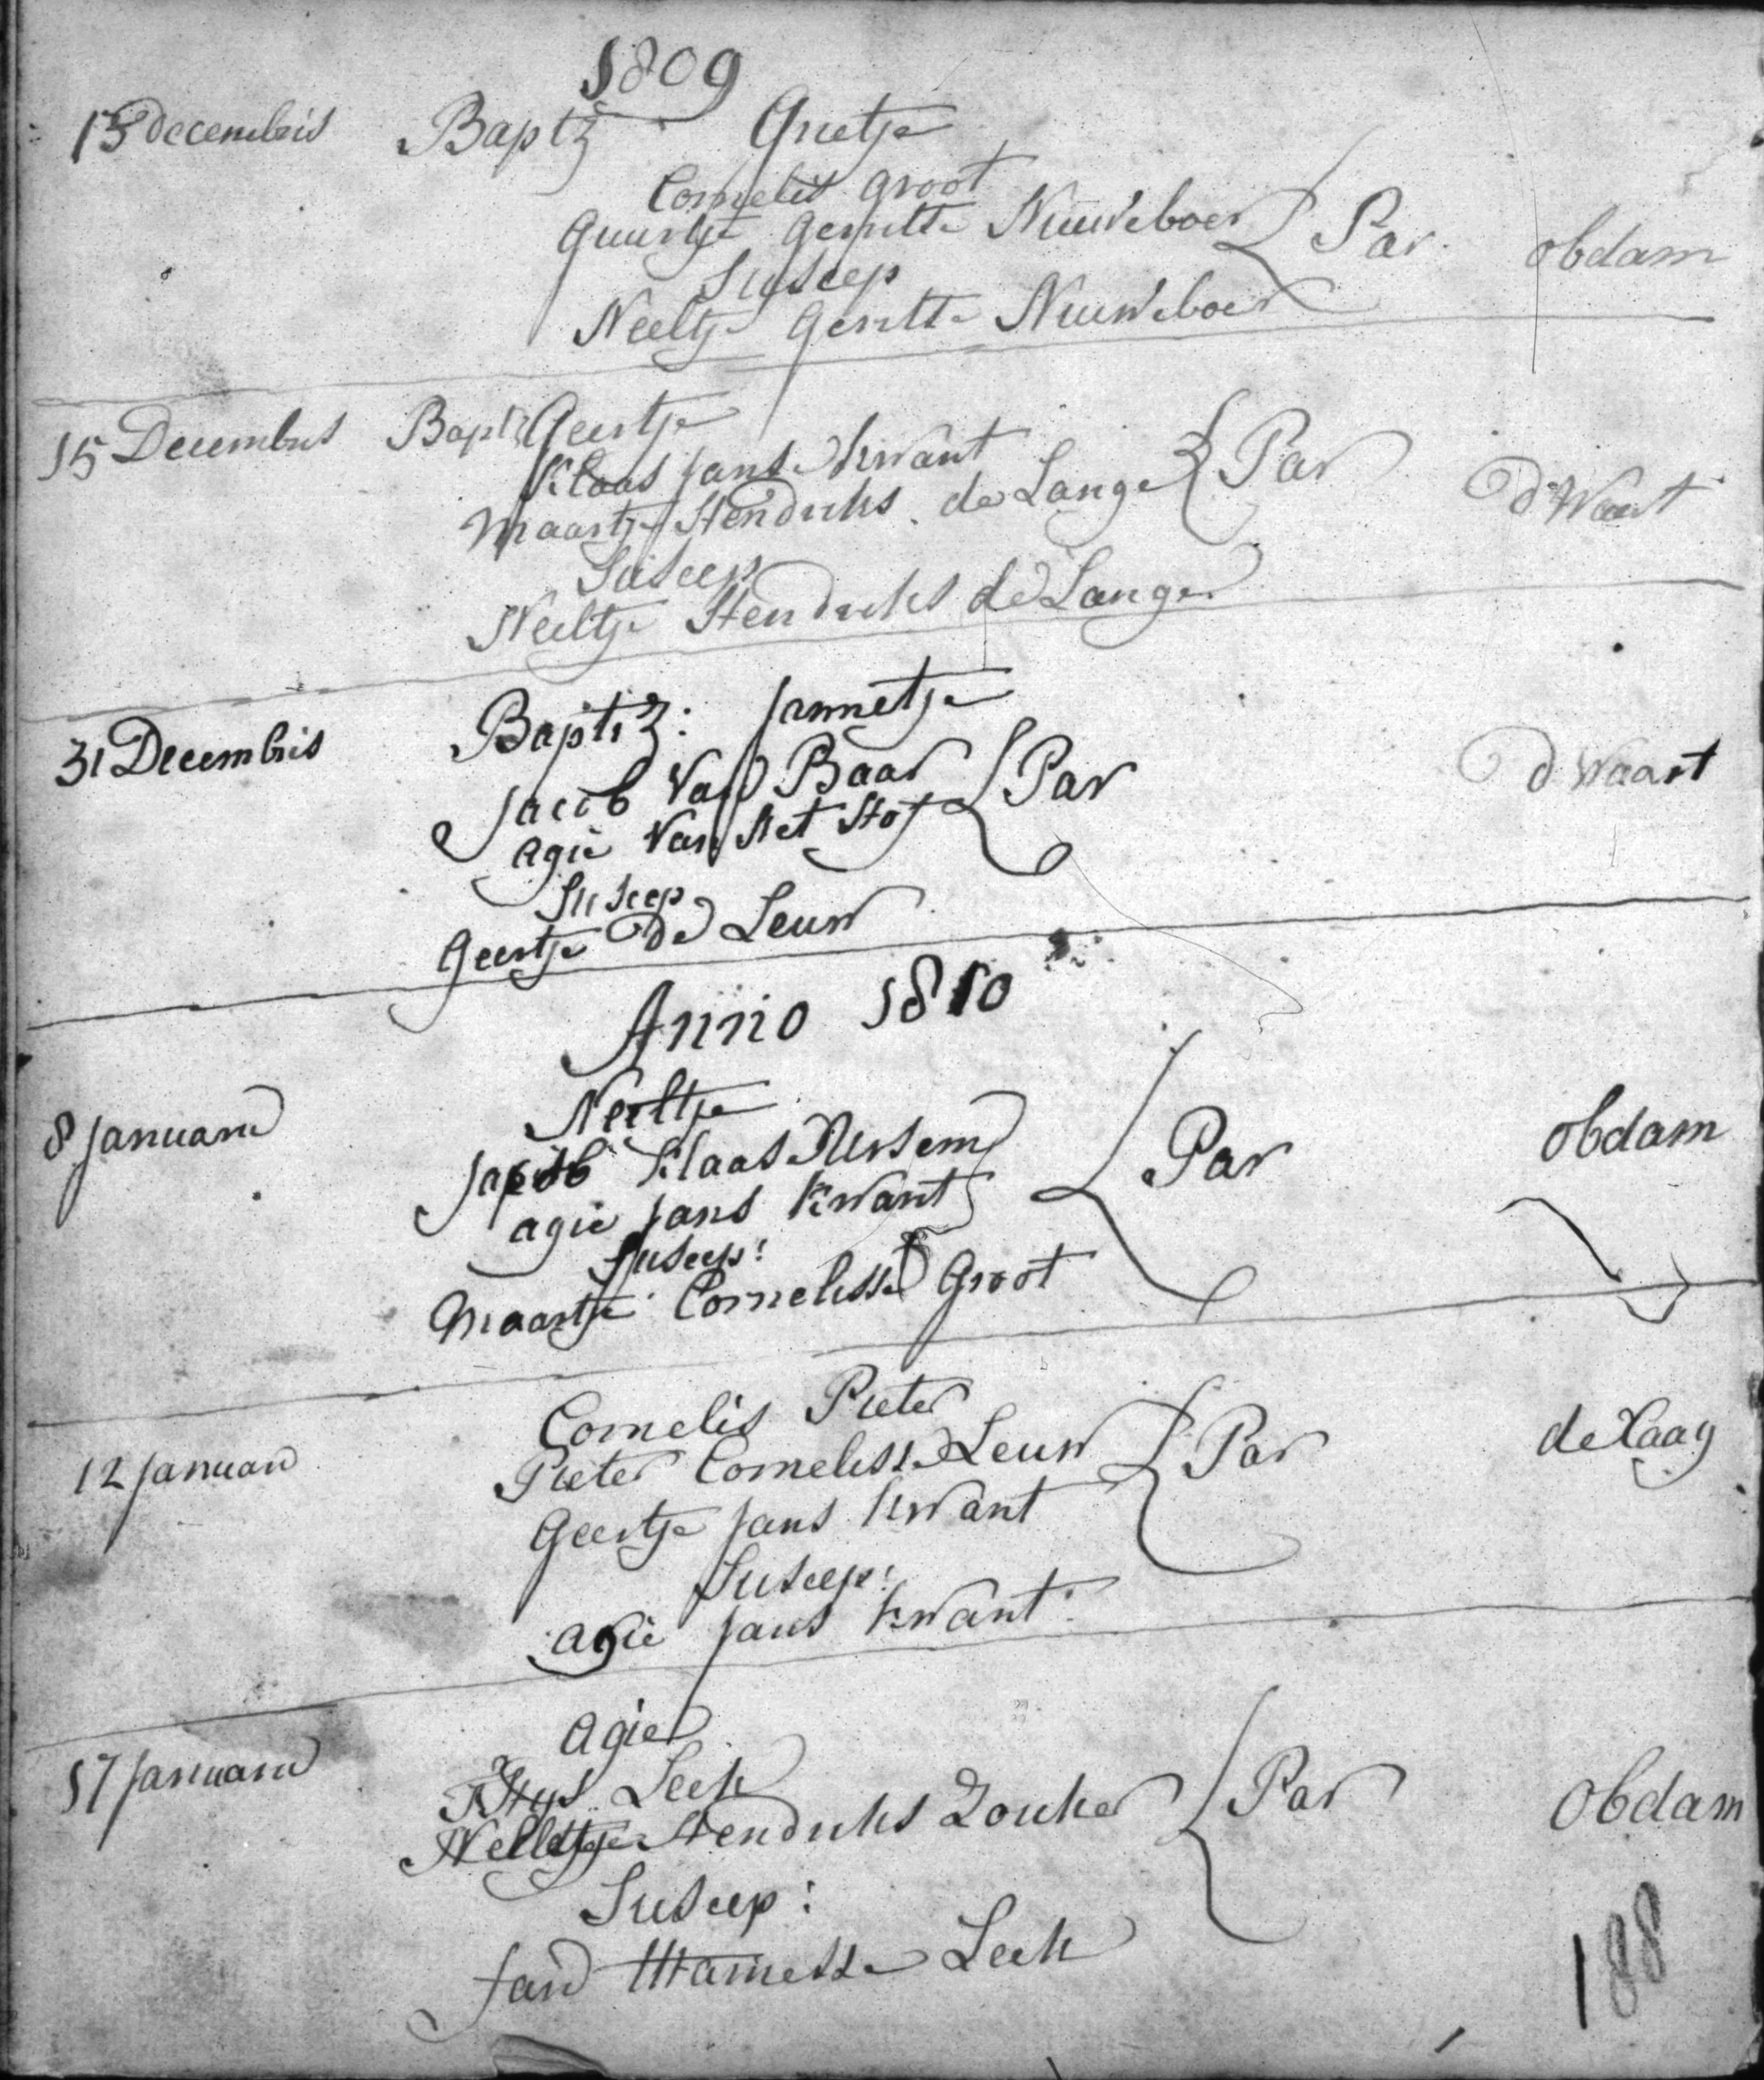 1809
13 decembris Baptz Grietje
Cornelis Groot
Guurtje Gerritte Nieuweboer Par. obdam
Suscep
Neeltje Gerritte Nieuweboer
15 Decembris Baptz Geertje
Klaas Jans Kwant
Maartje Hendriks de Lange Par d Waart
Suscep
Neeltje Hendriks de Lange
31 Decembris Baptiz: Jannetje
Jacob Van Baar Par d Waart
Agie Van Het Hof
Suscep
Geertje De Leuw
Anno 1810
8 Januarii Neeltje
Jacob Klaas Ursem Par obdam
Agie Jans Kwant
Suscep:
Maartje Cornelisse Groot
12 Januari Cornelis Pieter
Pieter Cornelisse Leuw Par de Kaag
Geertje Jans Kwant
Suscep:
Agie Jans Kwant
17 Januarii Agie
Thys Leek
Neeltje Hendriks Zonker Par Obdam
Suscep:
Jan Leek
188